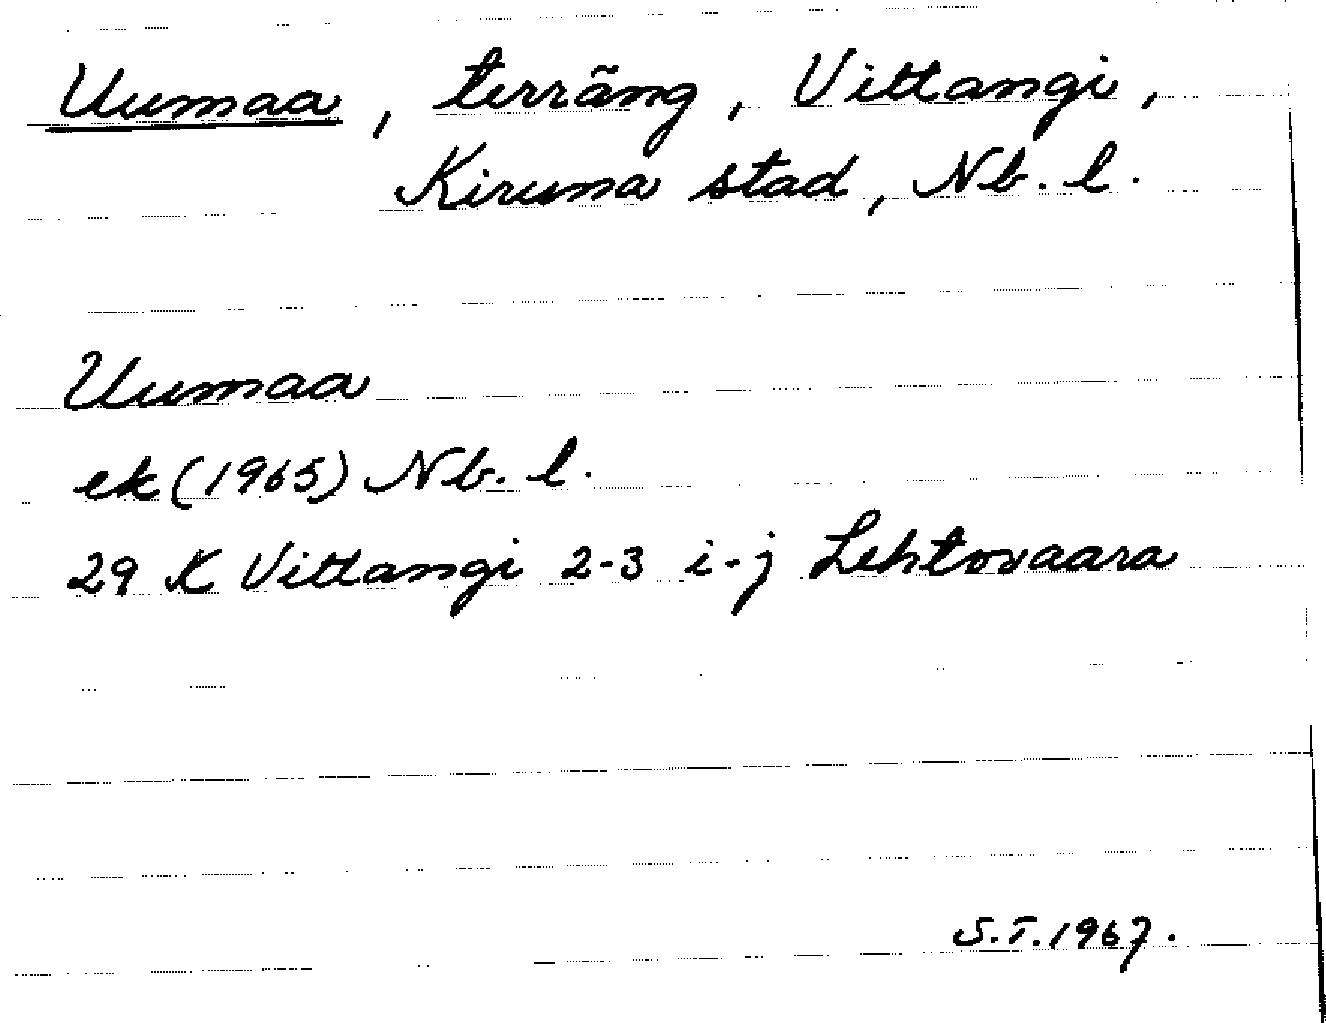 Uumaa, terräng, Vittangi,
Kiruna stad, Nb. l.
Uumaa
ek (1965) Nb. l.
29 K Vittangi 2-3 i-j Lehtovaara
S.T. 1967.